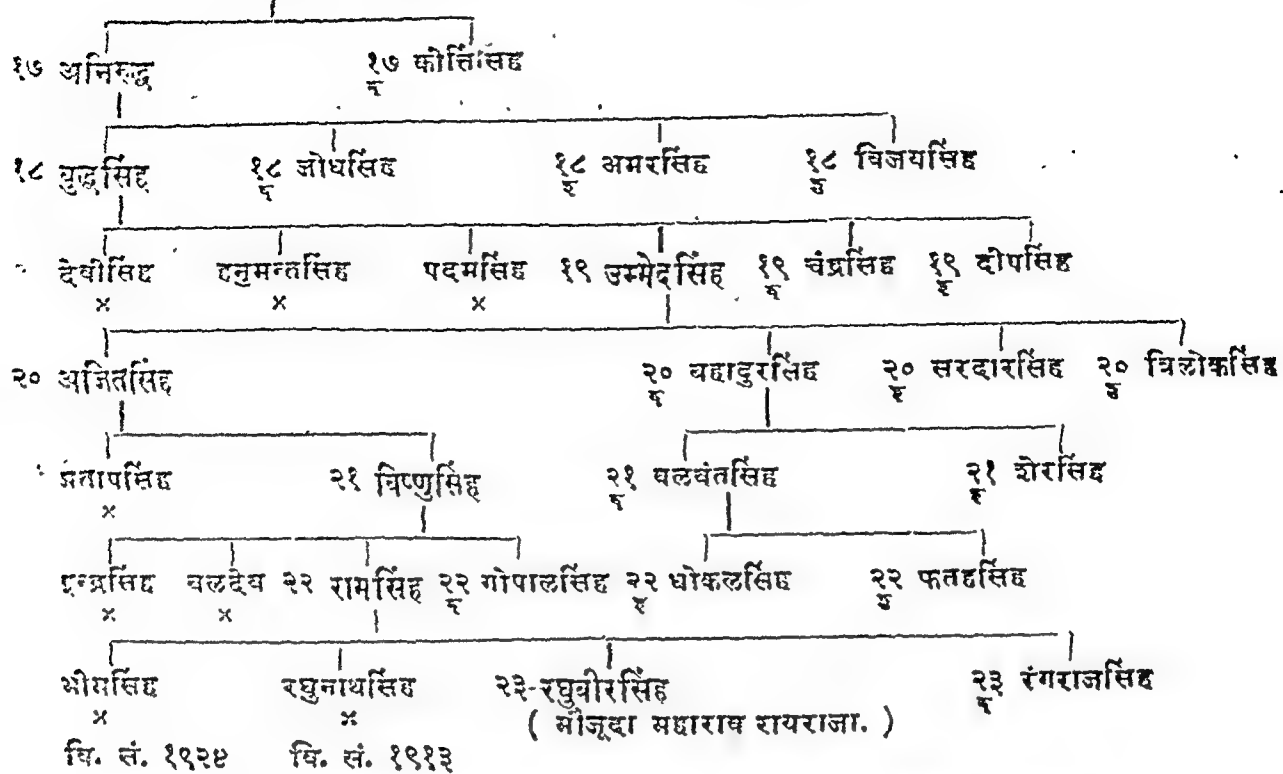 १७ अनिरुद्ध १७ कीर्तिसिंह
१८ बुद्धसिंह १८ जोधसिंह १८ अमरसिंह १८ विजयसिंह
देवीसिंह हनुमन्तसिंह पदमसिंह १९ उम्मेदसिंह १९ चंद्रसिंह १९ दीपसिंह
× × ×
२० अजितसिंह २० बहादुरसिंह २० सरदारसिंह २० त्रिलोकसिंह
प्रतापसिंह २१ विष्णुसिंह २१ बलवंतसिंह २१ शेरसिंह
×
इन्द्रसिंह बलदेव २२ रामसिंह २२ गोपालसिंह २२ धोकलसिंह २२ फतहसिंह
× ×
भीमसिंह रघुनाथसिंह २३-रघुवीरसिंह २३ रंगराजसिंह
× × ( मौजूदा महाराव रायराजा. )
वि. सं. १९२४ वि. सं. १९१३